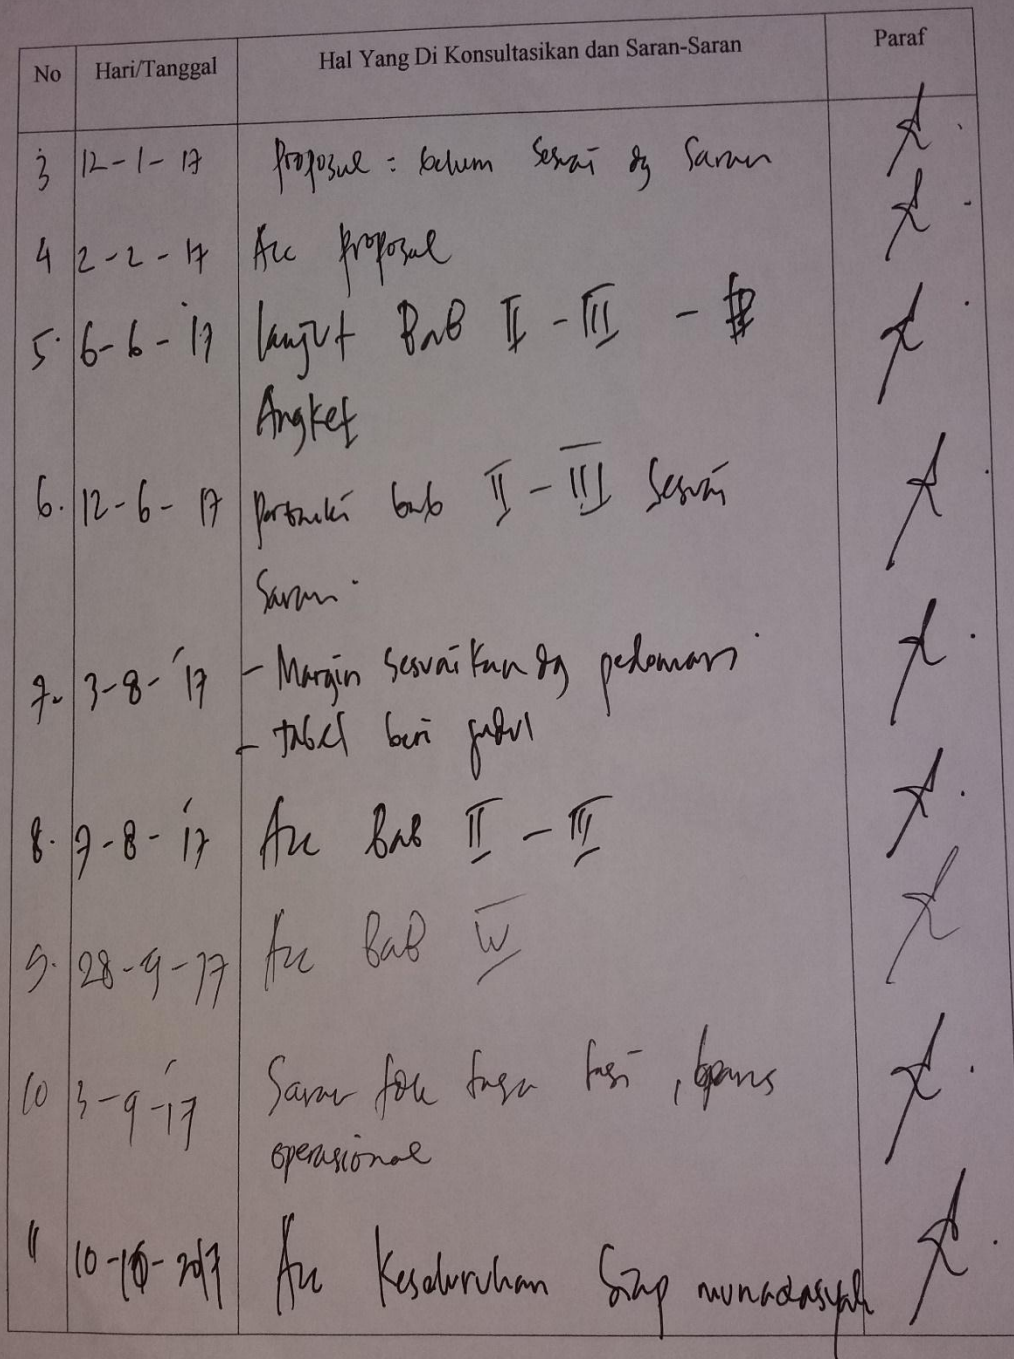 No Hari/Tanggal Hal Yang Di Konsultasikan dan Saran-Saran Paraf
3 12-1-17 Proposal : belum Sesuai dg Saran
4 2-2-17 Acc proposal
5. 6-6-'17 lanjut Bab II - III -
Angket
6. 12-6-17 perbaiki bab II - III Sesuai
Saran.
7. 3-8-'17 - Margin Sesuaikan dg pedoman
- tabel beri judul
8. 7-8-'17 Acc Bab II - III
9. 28-9-17 Acc Bab IV
10 3-9-'17 Saran
operasional
11 10-10-2017 Acc Keseluruhan Siap munaqasyah